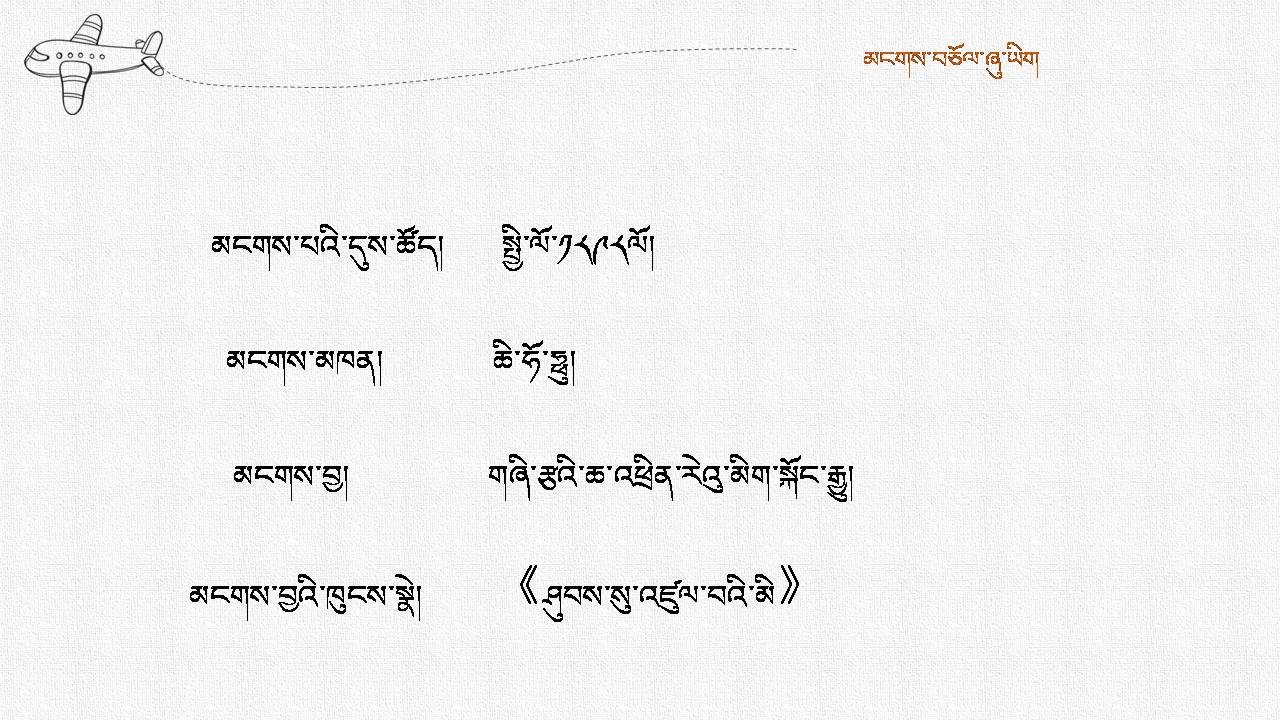 མངགས་བཅོལ་ཞུ་ཡིག
མངགས་པའི་དུས་ཚོད། སྤྱི་ལོ་༡༨༩༨ལོ།
མངགས་མཁན། ཆི་ཧོ་ཧྥུ།
མངགས་བྱ། གཞི་རྩའི་ཆ་འཕྲིན་རེའུ་མིག་སྐོང་རྒྱུ།
མངགས་བྱའི་ཁུངས་སྣེ། 《ཤུབས་སུ་འཛུལ་བའི་མི》